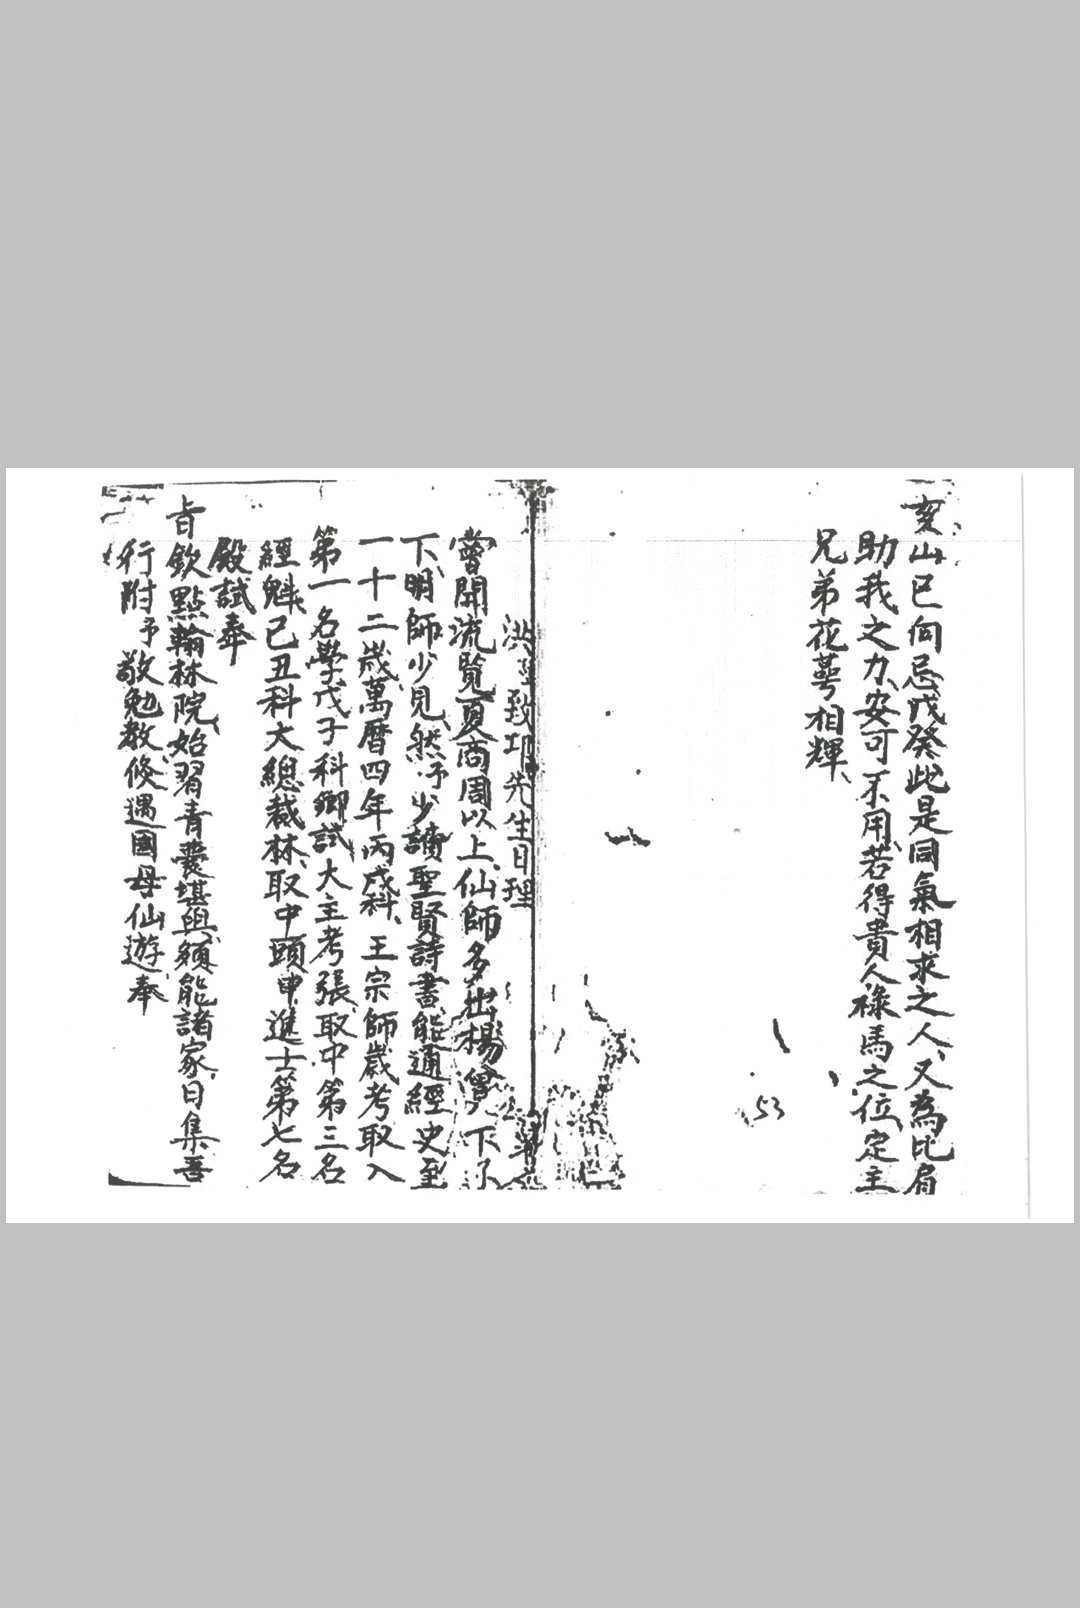 亥山巳向忌戊癸此是同氣相求之人、又為比肩
助我之力、安可不用、若得貴人祿馬之位、定主
兄弟花萼相輝、
53
洪 致 先生日理
嘗聞流覽夏商周以上、仙師多出、楊曾 下
下、明師少見、然予少讀聖賢詩書、能通經史、至
一十二歲、萬曆四年丙戌科、王宗師歲考取入
第一名學、戊子科鄉試、大主考張、取中第三名
經魁、己丑科大總裁林、取中頭甲進士第七名
殿試奉
旨欽點翰林院、始習青囊堪輿、頗能諸家、日集吾
行附予敬勉教、倏遇國母仙遊、奉